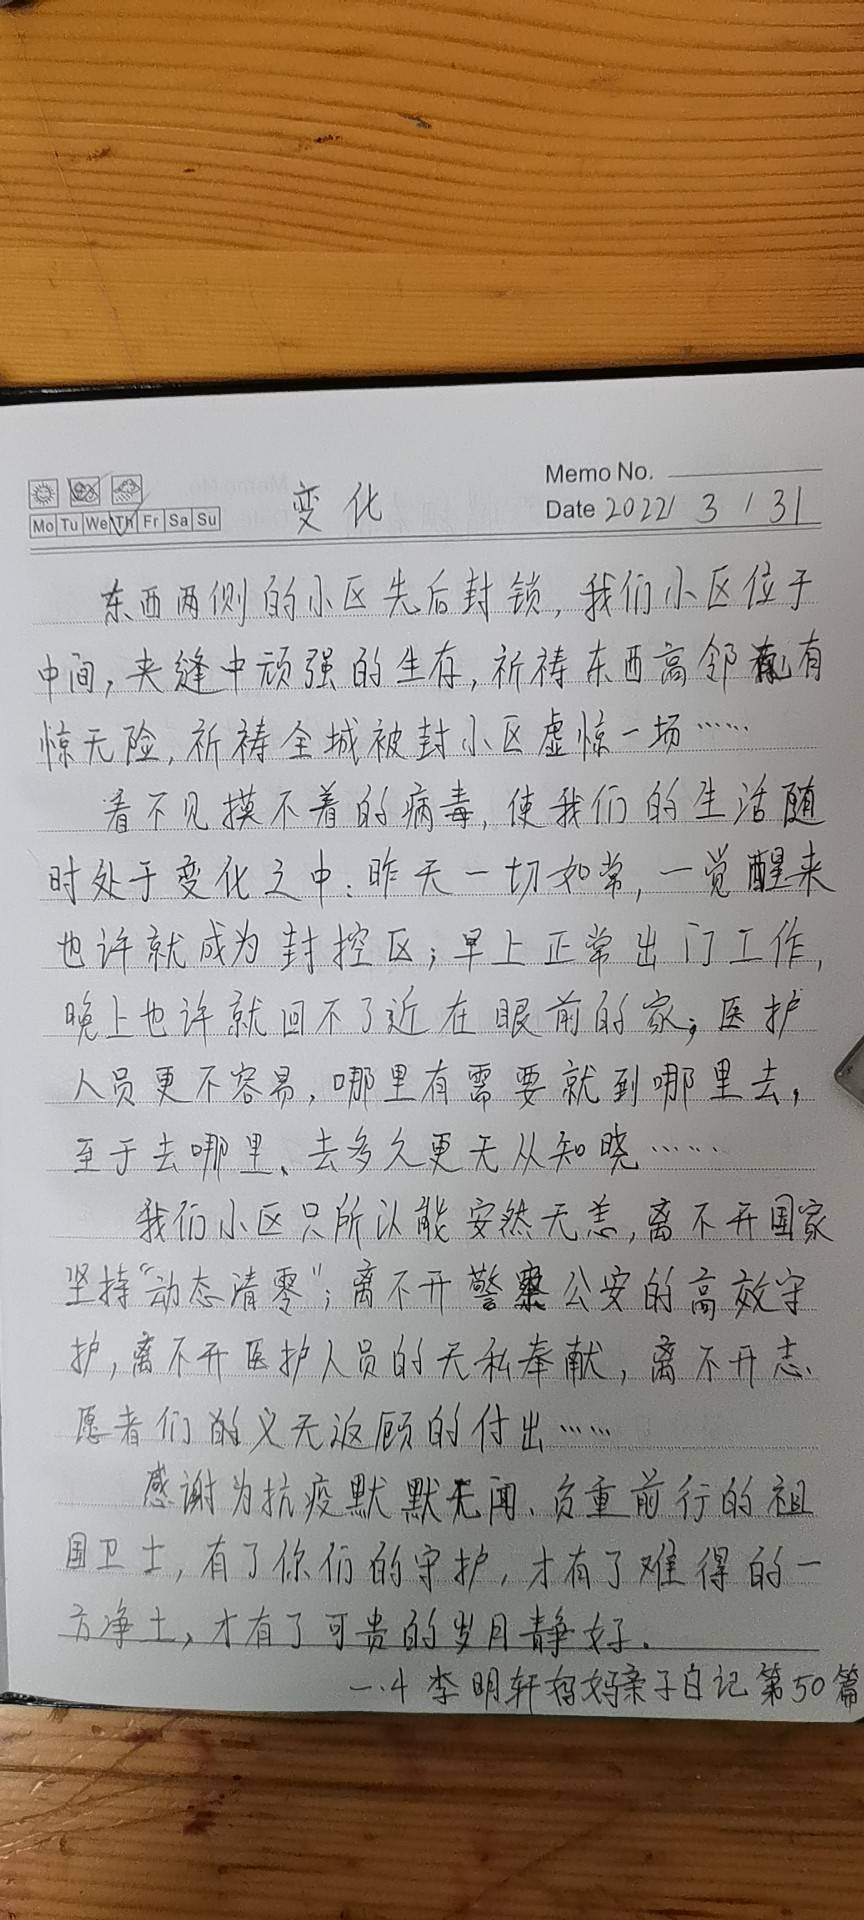 Memo No.
变化
Date 2022 / 3 / 31
Mo Tu We Th Fr Sa Su
东西两侧的小区先后封锁，我们小区位于
中间，夹缝中顽强的生存，祈祷东西高邻有
惊无险，祈祷全城被封小区虚惊一场……
看不见摸不着的病毒，使我们的生活随
时处于变化之中：昨天一切如常，一觉醒来
也许就成为封控区；早上正常出门工作，
晚上也许就回不了近在眼前的家；医护
人员更不容易，哪里有需要就到哪里去，
至于去哪里、去多久更无从知晓……
我们小区只所以能安然无恙，离不开国家
坚持“动态清零”；离不开警察公安的高效守
护，离不开医护人员的无私奉献，离不开志
愿者们的义无返顾的付出……
感谢为抗疫默默无闻、负重前行的祖
国卫士，有了你们的守护，才有了难得的一
方净土，才有了可贵的岁月静好.
一.4 李明轩妈妈亲子日记第50篇